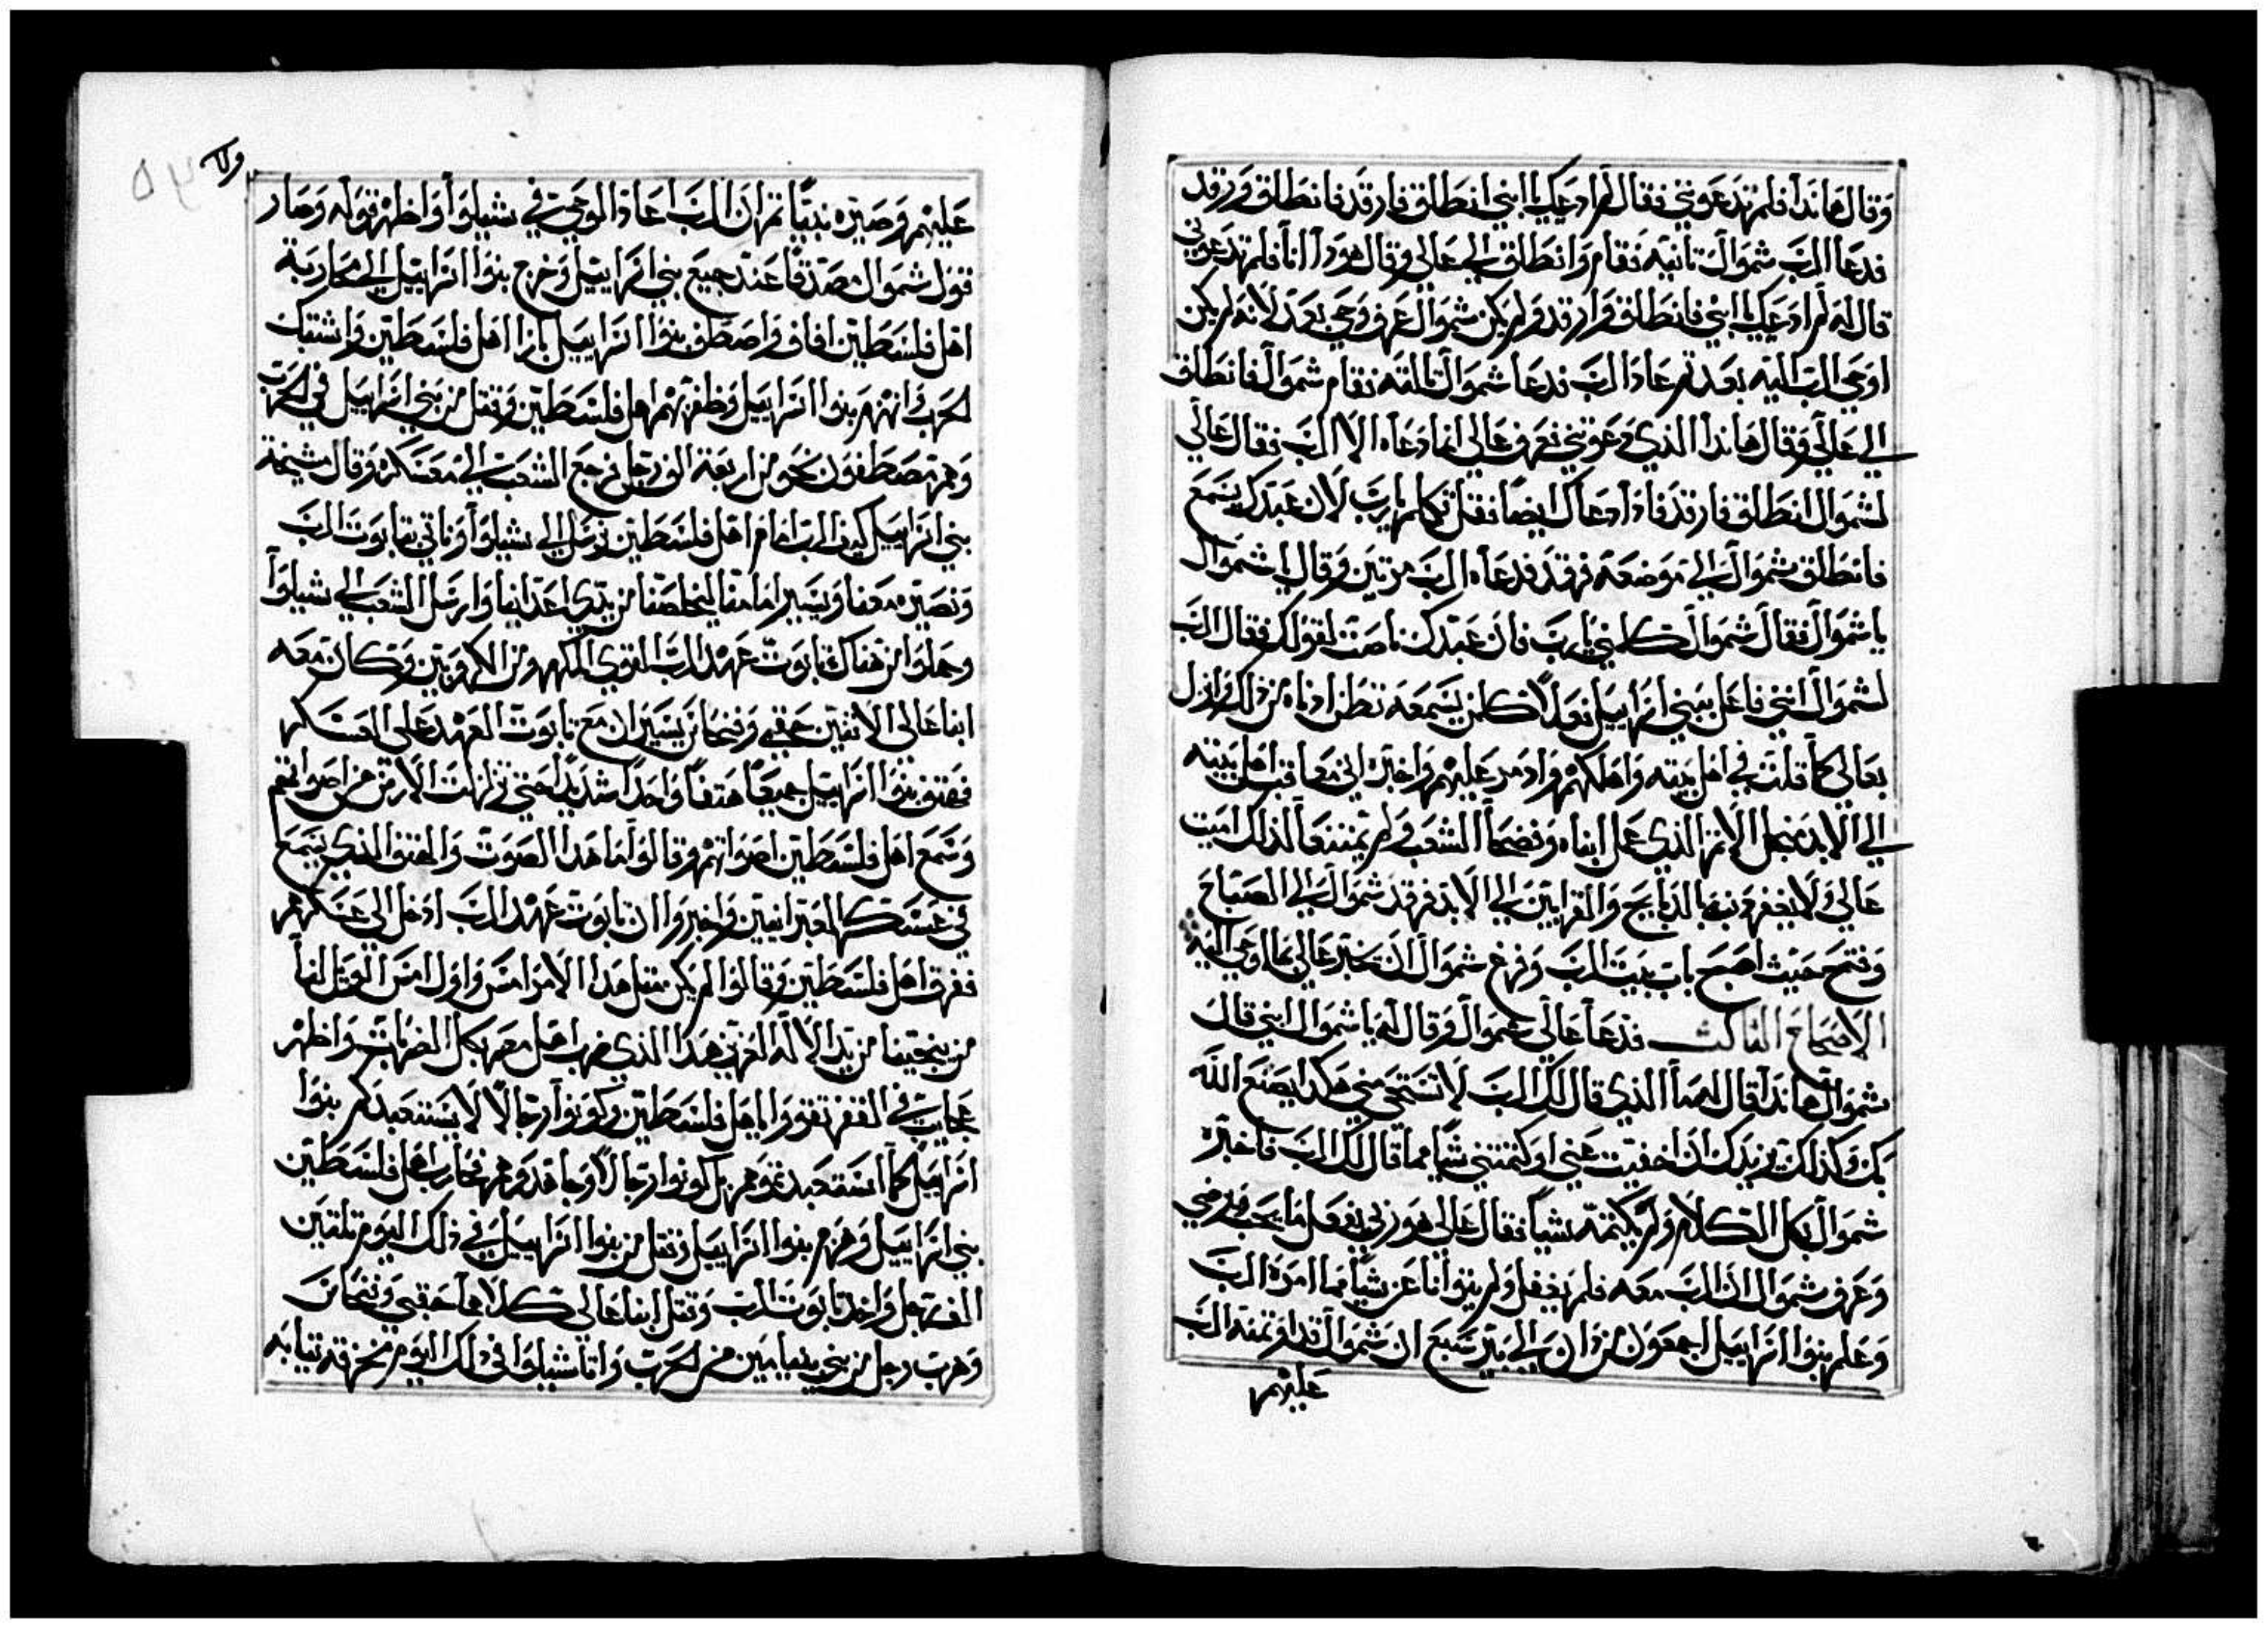 وقال هانذا فلم تدعوني فقال لم ادعك يا ابني انطلق فارقد فانطلق ورقد
فدعا الرب شموال تانيه فقام وانطلق الي عالي وقال هوذا انا فلم تدعوني
قال له لم ادعك يا ابني فانطلق وارقد ولم يكن شموال عرف وحي بعد لانه لم يكن
اوحي الرب اليه بعد ثم عاد الرب فدعا شموال تالته فقام شموال فانطلق
الي عالي وقال هاندا الذي دعوتني فعرف عالي انما دعاه الا الرب فقال عالي
لشموال انطلق فارقد فاذا دعاك ايضا فقل تكلم يا رب لان عبدك يسمع
فانطلق شموال الي موضعه فرقد فدعاه الرب مرتين وقال يا شموال
يا شموال فقال شموال تكلمني يا رب فان عبدك ناصت لقولك فقال الرب
لشموال انني فاعل ببني اسراييل فعلا كلمن يسمعه تطن ادناه من ذلك وانزل
بعالي كما قلت في اهل بيته واهلكهم وادمر عليهم واخبره اني معاقب اهل بيته
الي الابد منجل الاتم الذي عمل ابناه وفضحا الشعب ولم يمتنعا لذلك اميت
عالي ولا يغفر ذنبه بالدبايح والقرابين الي الابد فرقد شموال الي الصباح
وفتح حيث اصبح باب بيت الرب وفزع شموال ان يخبر عالي بما اوحي اليه
الاصحاح الثالث فدعا عالي شموال وقال له يا شموال ابني قال
شموال هاندا قال له ما الذي قال لك الرب لا تستحي مني هكدا يصنع الله
بك وكذلك يزيدك ان اخفيت عني او كتمتني شيا مما قال لك الرب فاخبره
شموال بكل الكلام ولم يكتمه شيا فقال عالي هو ربي يفعل ما يحب ويرضي
وعرف شموال ان الرب معه فلم يغفل ولم يتوانا عن شيا مما امره الرب
وعلم بنوا اسراييل اجمعون من دان الي بير سبع ان شموال قد اوتمنه الرب
عليهم
ولا
٥٣
عليهم وصيره نبيا ثم ان الرب اعاد الوحي في شيلوا واظهر قوله وصار
قول شموال مصدقا عند جميع بني اسراييل وخرج بنوا اسراييل الي محاربة
اهل فلسطين افاف واصطف بنوا اسراييل بازا اهل فلسطين واشتبك
الحرب وانهزم بنوا اسراييل وظفر بهم اهل فلسطين وقتل من بني اسراييل في الحرب
وهم مصطفون نحو من اربعة الف رجل فرجع الشعب الي معسكره وقال مشيخة
بني اسراييل كيف الرب امام اهل فلسطين نرسل الي شيلوا وناتي بتابوت الرب
ونصيره معنا ويسير امامنا ليخلصنا من يدي اعداينا وارسل الشعب الي شيلوا
وحملوا من هناك تابوت عهد الرب القوي المكهر من الاكروبين وكان معه
ابنا عالي الاتنين حقني وفنحاس يسيران مع تابوت العهد علي العسكر
فهتف بنوا اسراييل جميعا هتفا واحدا شديدا حتي تزلزلت الارض من اصواتهم
وسمع اهل فلسطين اصواتهم وقالوا ما هدا الصوت والهتف الذي يسمع
في عسكر العبرانيين واخبروا ان تابوت عهد الرب ادخل الي عسكرهم
ففرق اهل فلسطين وقالوا لم يكن متل هدا الامر امس واول امس الويل لنا
من ينجينا من يد الاله العزيز هدا الذي ضرب اهل مصر بكل الضربات واظهر
عجايب في القفر تقووا يا اهل فلسطين وكونوا رجالا لا يستعبدكم بنوا
اسراييل كما استعبدتموهم بل كونوا رجالا وجاهدوهم فحارب اهل فلسطين
بني اسراييل وهزم بنوا اسراييل وقتل من بنوا اسراييل في ذلك اليوم تلتين
الف رجل واخد تابوت الرب وقتل ابنا عالي كلاهما حقني وفنحاس
وهرب رجل من بني بنيامين من الحرب واتا شيلوا في ذلك اليوم مخرقه تيابه